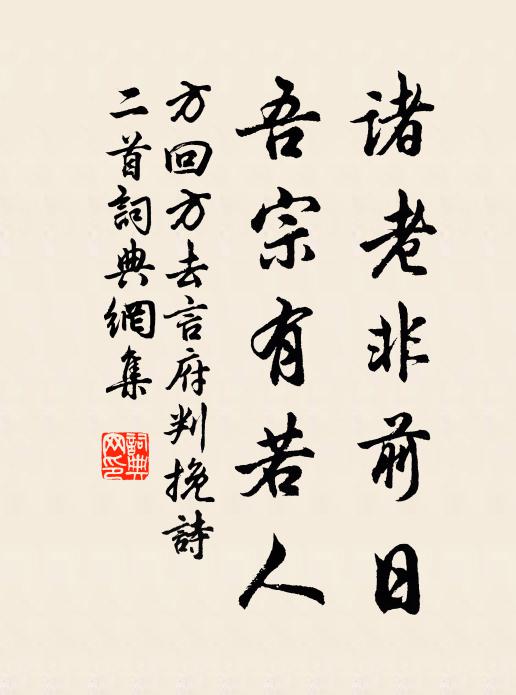 諸老非前日
吾宗有若人
方回方去言府判挽詩
二首詞典網集
詞典
网印